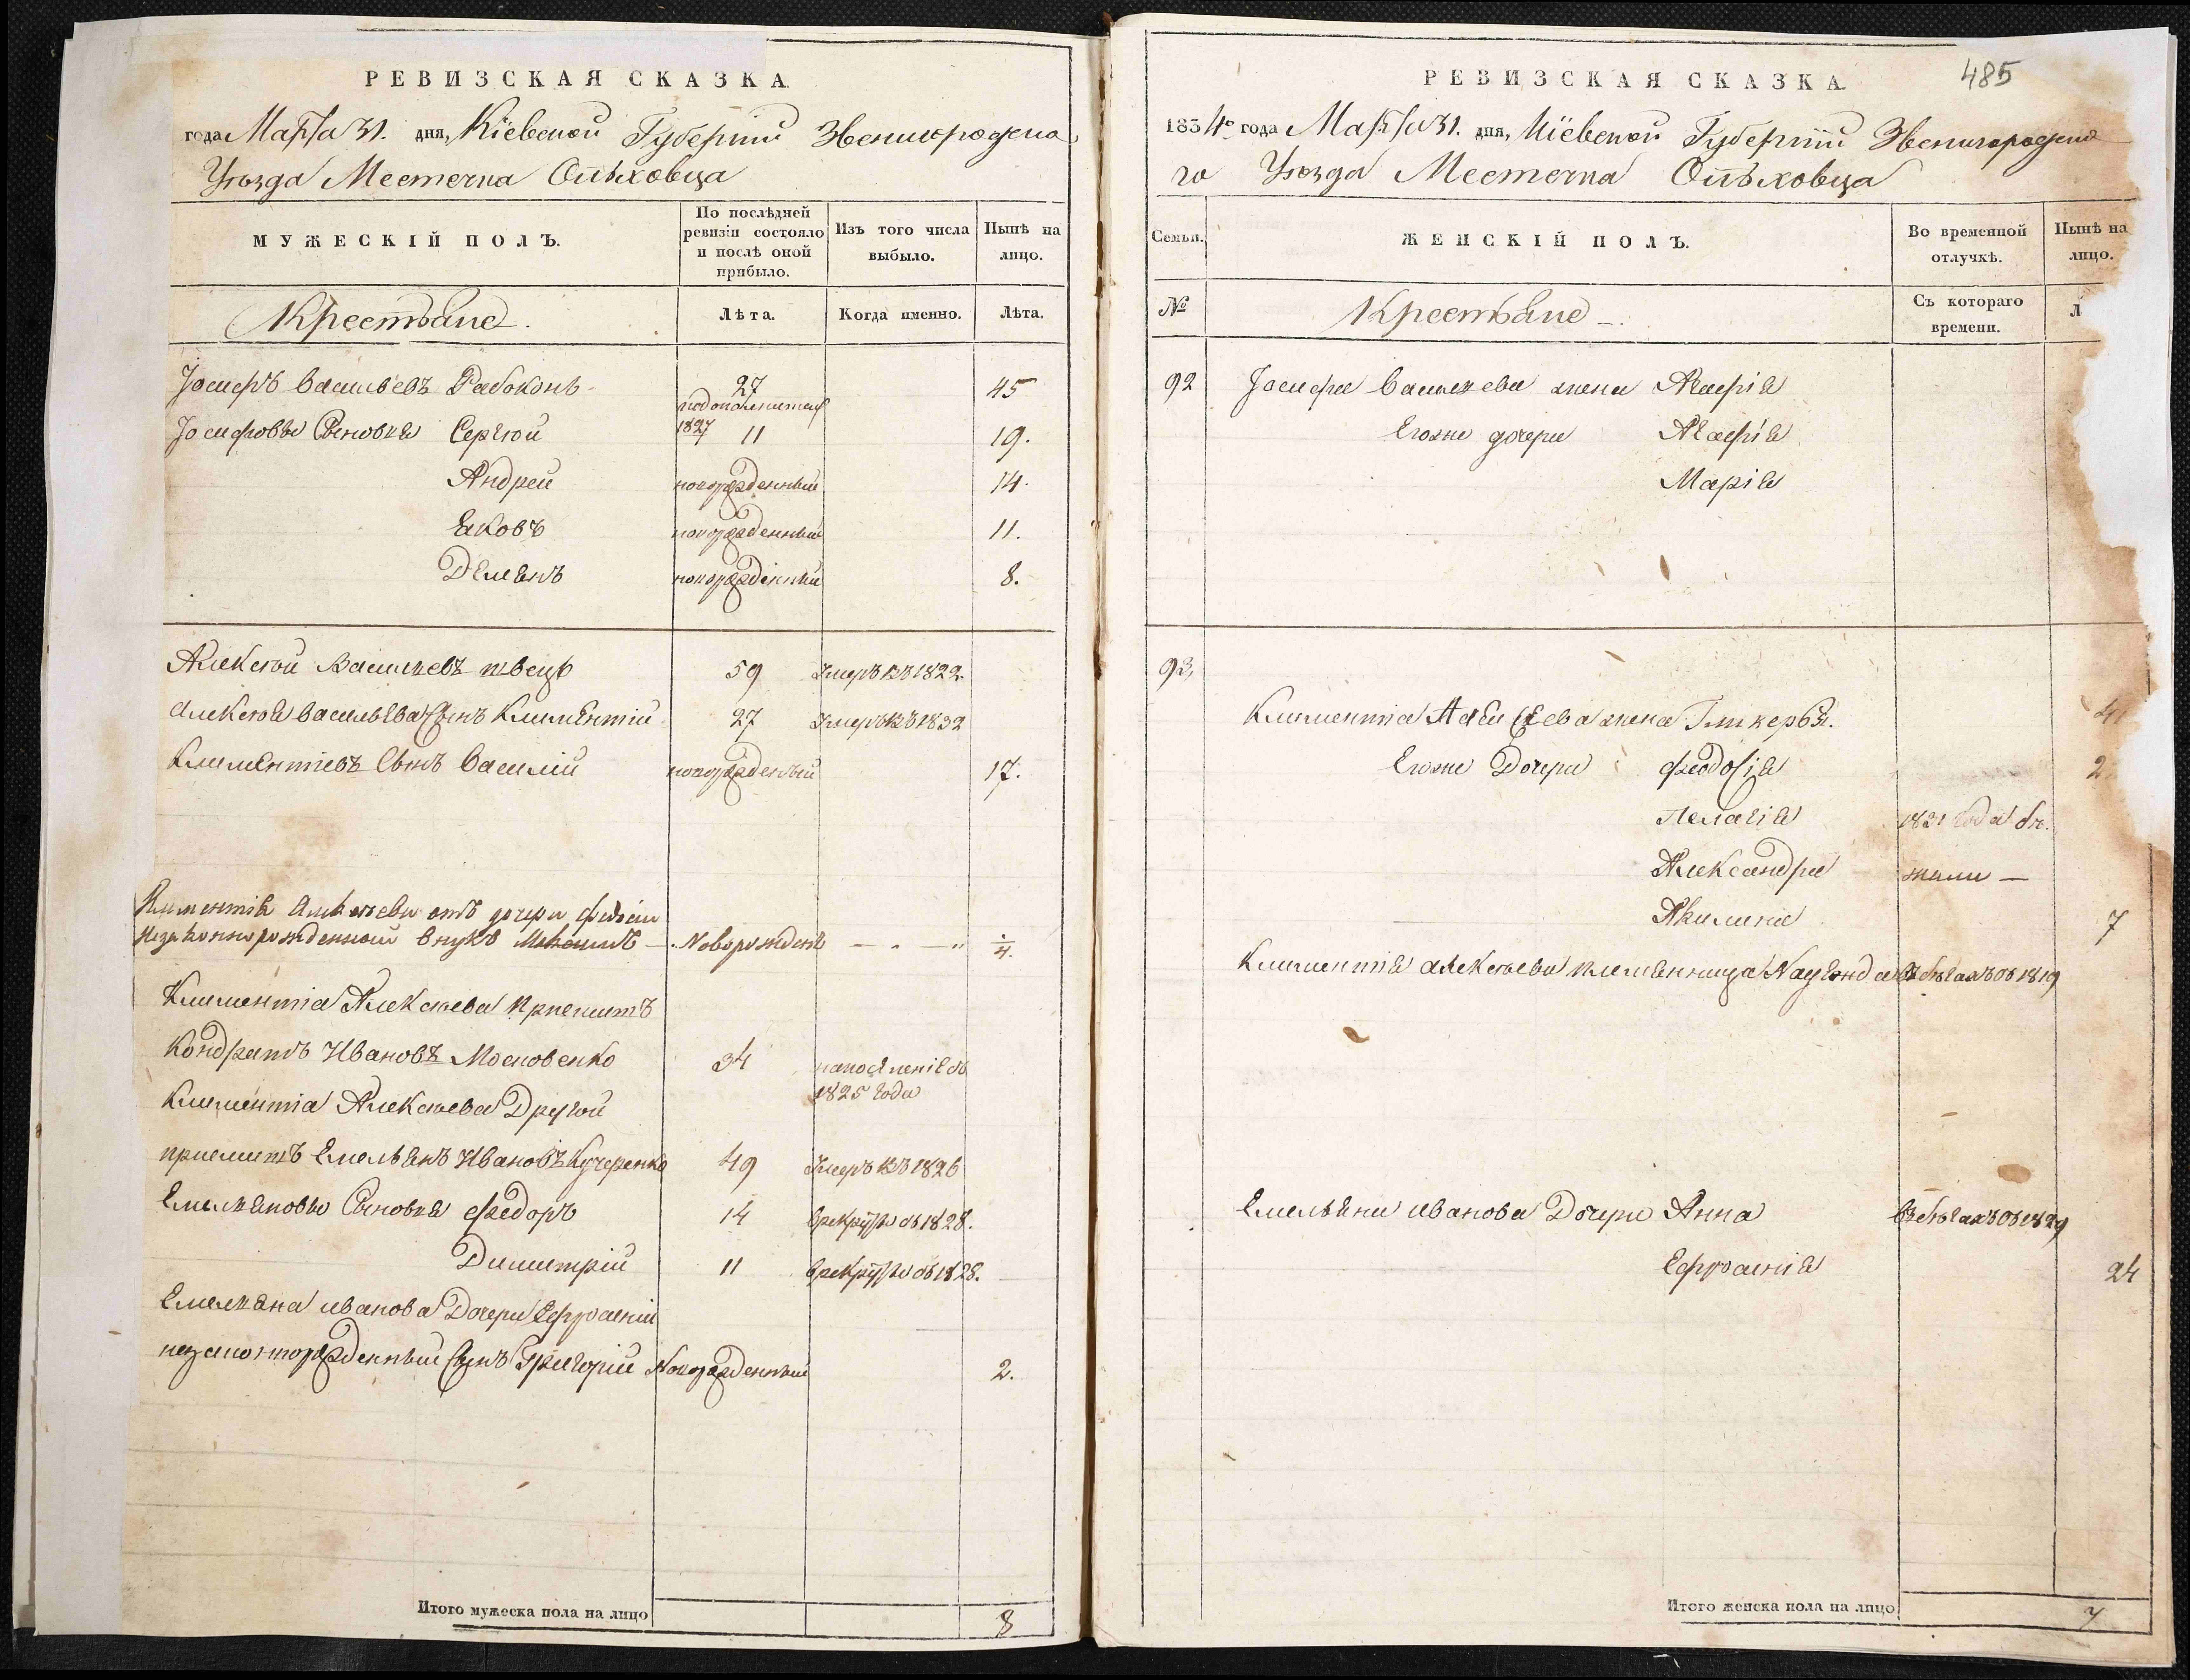 РЕВИЗСКАЯ СКАЗКА
года Марта 31. дня, Кіевской Губерніи Звенигородска
Уѣзда Местечка Ольховца
МУЖЕСКІЙ ПОЛЪ.
По послѣдней ревизіи состояло и послѣ оной прибыло.
Изъ того числа выбыло.
Нынѣ на лицо.
Крестьяне.
Лѣта.
Когда именно.
Лѣта.
Іосифъ Васильевъ Рабоконь 27 45
1827
Іосифовы Сыновья Сергѣй 11 19.
Андрей новорожденный 14.
Яковъ новорожденный 11.
Демянъ новорожденный 8.
Алексѣй Васильевъ швецъ 59 Умеръ въ 1822.
Алексѣя Васильева Сынъ Климентій 27 Умеръ въ 1832
Климентіевъ Сынъ Василій новорожденый 17.
Климентія Алексѣева отъ дочери
Незаконнорожденной внукъ Новорожденъ — " — "
Климентіа Алексѣева приемитъ
Кондратъ Ивановъ Московенко 34 1825 года
Климентіа Алексѣева Другой
приемитъ Емельянъ Ивановъ Кучеренко 49 Умеръ въ 1826
Емельяновы Сыновья Федоръ 14 в рекруты въ 1828.
Димитрій 11 в рекруты въ 1828.
Емельяна иванова Дочери Ефросиніи
незаконнорожденный Сынъ Григорій Новорожденный 2.
Итого мужеска пола на лицо 8
РЕВИЗСКАЯ СКАЗКА
485
1834го года Марта 31. дня, Кіевской Губерніи Звенигородска
го Уѣзда Местечка Ольховца
Семьи.
ЖЕНСКІЙ ПОЛЪ.
Во временной отлучкѣ.
Нынѣ на лицо.
№
Крестьяне
Съ котораго времени.
Л
92 Іосифа Васильева жена Агафія
Егоже дочери Агафія
Марія
93,
Климентіа Алексѣева жена Гликерья. 4
Егоже Дочери Феодосія 2
Пелагія 1821 года бѣ.
Александра жали —
Акилина 7
Климентія алексѣева племянница въ бѣгахъ съ 1819
Емельяна иванова Дочери Анна въ бѣгахъ съ 1829
Ефросинія 24
Итого женска пола на лицо 7